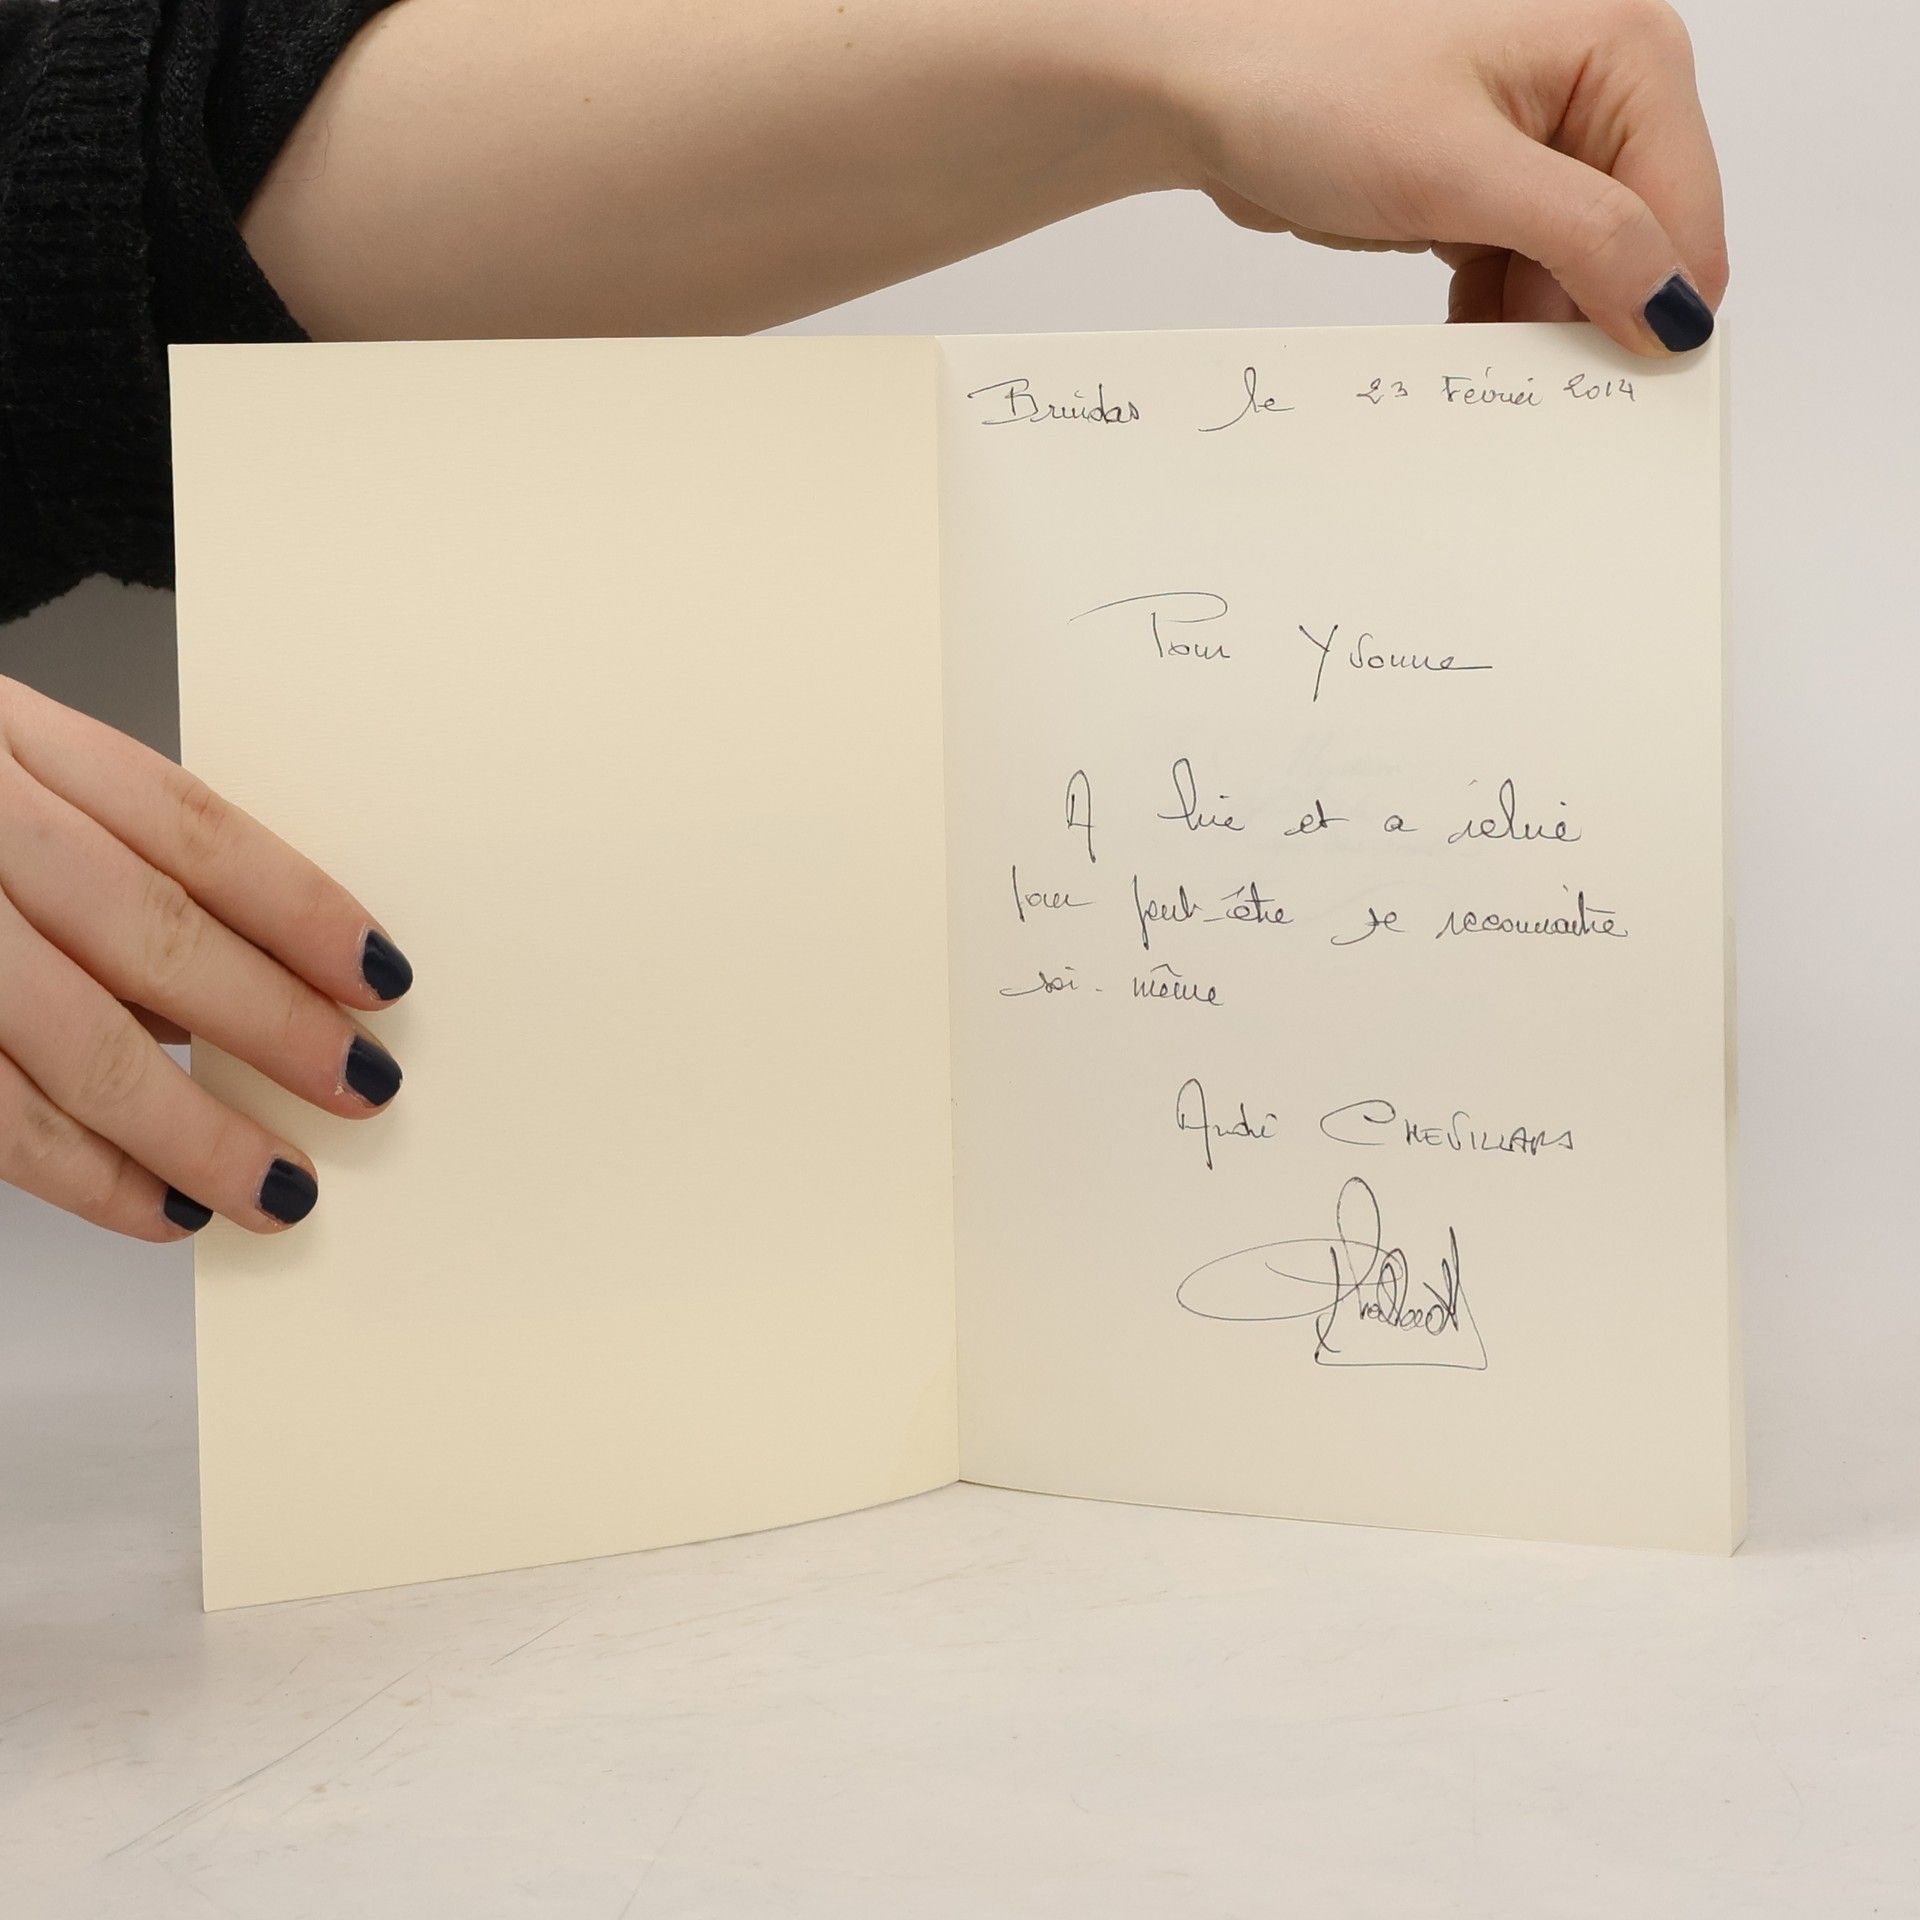 le 23 Février 2014
Pour Yvonne
A lire et a relire
pour peut-être se reconnaitre
soi-même
André